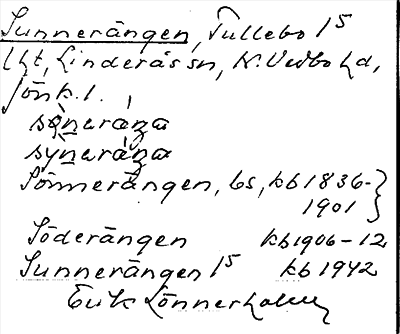 Sunnerängen, Tullebo 1⁵
lht, Linderås sn, N. Vedbo hd,
Jönk. l.
Sönnerängen, bs, kb 1836-
1901
Söderängen kb 1906-12
Sunnerängen 1⁵ kb 1942
Erik Lönnerholm